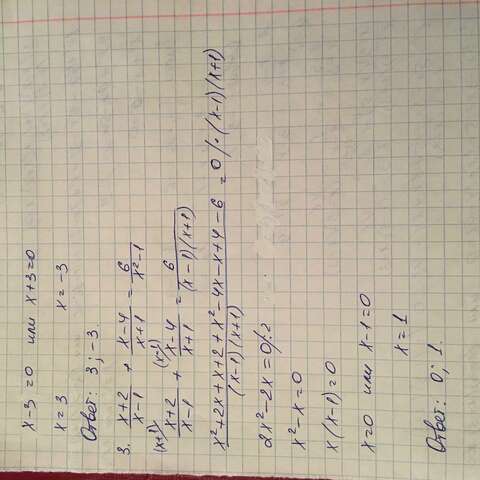 x-3=0 или x+3=0
x=3 x=-3
Ответ: 3; -3.
3. (x+2)/(x-1) + (x-4)/(x+1) = 6/(x²-1)
(x+1) (x-1)
(x+2)/(x-1) + (x-4)/(x+1) = 6/((x-1)(x+1))
(x²+2x+x+2+x²-4x-x+4-6)/((x-1)(x+1)) = 0 /·(x-1)(x+1)
2x²-2x=0/:2
x²-x=0
x(x-1)=0
x=0 или x-1=0
x=1
Ответ: 0; 1.